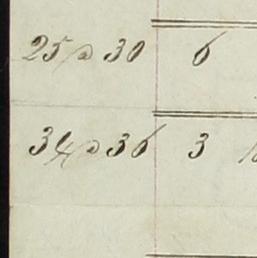 25 a 30 6
34 a 36 3